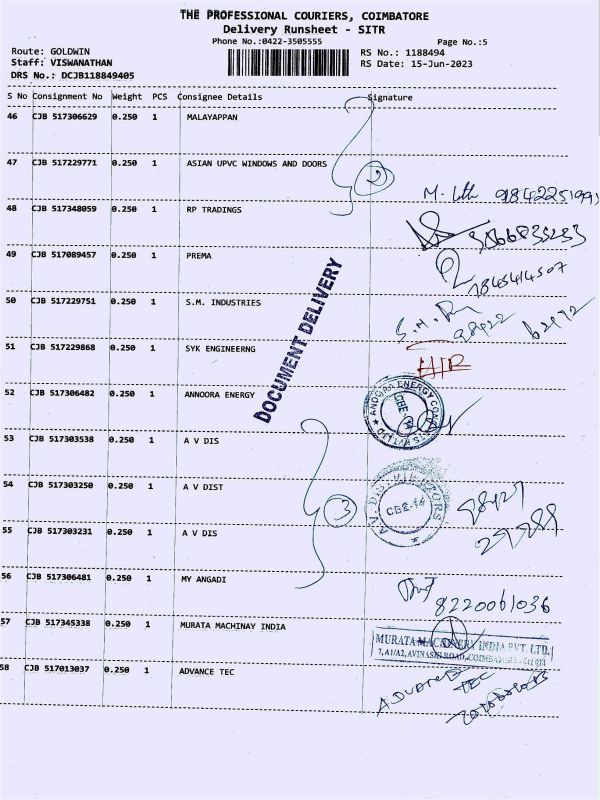 THE PROFESSIONAL COURIERS, COIMBATORE
Delivery Runsheet - SITR
Phone No.:0422-3505555
Page No.:5
Route: GOLDWIN
RS No.: 1188494
Staff: VISWANATHAN
RS Date: 15-Jun-2023
DRS No.: DCJB118849405
S No Consignment No Weight PCS Consignee Details Signature
46 CJB 517306629 0.250 1 MALAYAPPAN
47 CJB 517229771 0.250 1 ASIAN UPVC WINDOWS AND DOORS
2
48 CJB 517348059 0.250 1 RP TRADINGS
49 CJB 517089457 0.250 1 PREMA
50 CJB 517229751 0.250 1 S.M. INDUSTRIES
DOCUMENT DELIVERY
51 CJB 517229868 0.250 1 SYK ENGINEERNG
52 CJB 517306482 0.250 1 ANNOORA ENERGY
53 CJB 517303538 0.250 1 A V DIS
54 CJB 517303250 0.250 1 A V DIST
3
55 CJB 517303231 0.250 1 A V DIS
56 CJB 517306481 0.250 1 MY ANGADI
8220061036
57 CJB 517345338 0.250 1 MURATA MACHINAY INDIA
MURATA MACHINERY INDIA PVT. LTD.
7, A1/A2, AVINASHI ROAD, COIMBATORE
58 CJB 517013037 0.250 1 ADVANCE TEC
ADVANCE TEC